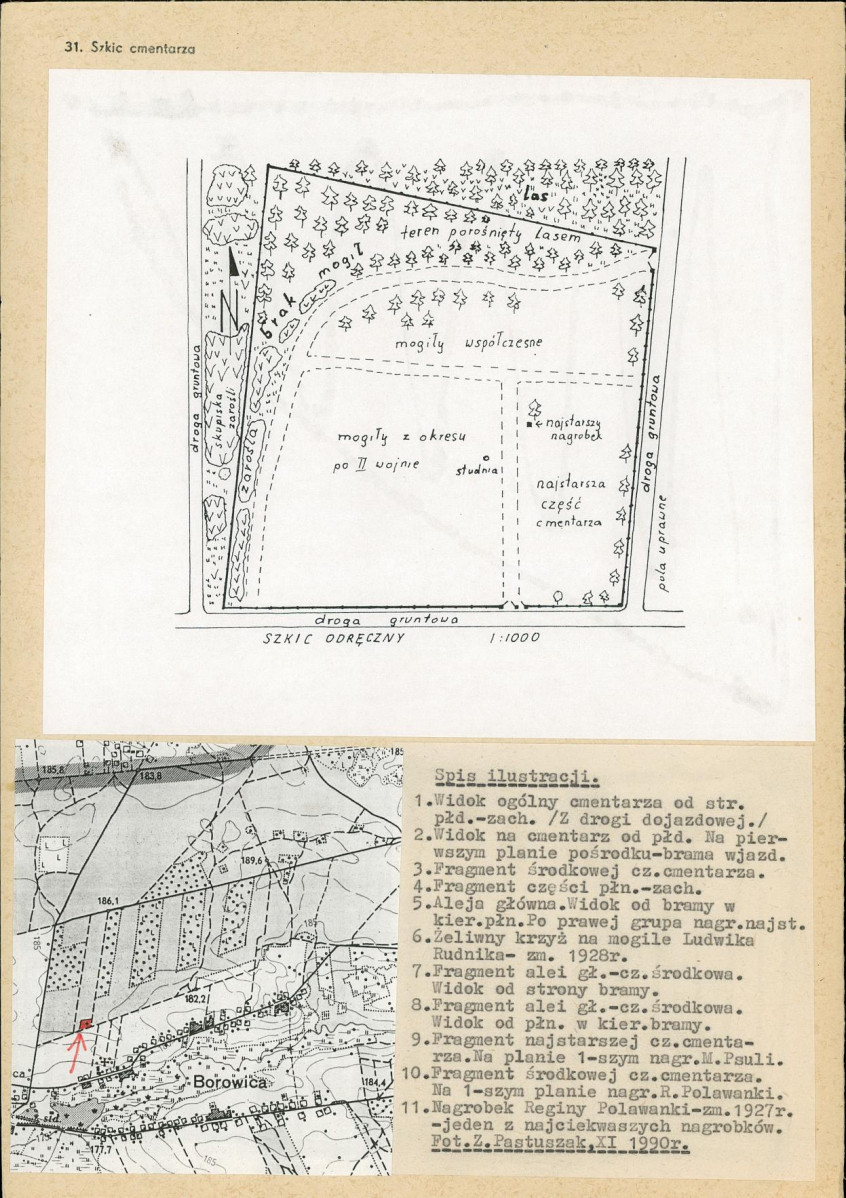 31. Szkic cmentarza
las
teren porośnięty lasem
brak mogił
N
mogiły współczesne
droga gruntowa
skupiska zarośli
zarośla
mogiły z okresu
po II wojnie
studnia
najstarszy
nagrobek
najstarsza
część
cmentarza
droga gruntowa
pola uprawne
droga gruntowa
SZKIC ODRĘCZNY 1:1000
185,8
183,8
185
189,6
186,1
185
185
182,2
Borowica
184,4
177,7
185
Spis ilustracji.
1.Widok ogólny cmentarza od str.
płd.-zach. /Z drogi dojazdowej./
2.Widok na cmentarz od płd. Na pier-
wszym planie pośrodku-brama wjazd.
3.Fragment środkowej cz.cmentarza.
4.Fragment części płn.-zach.
5.Aleja główna.Widok od bramy w
kier.płn.Po prawej grupa nagr.najst.
6.Żeliwny krzyż na mogile Ludwika
Rudnika- zm. 1928r.
7.Fragment alei gł.-cz.środkowa.
Widok od strony bramy.
8.Fragment alei gł.-cz.środkowa.
Widok od płn. w kier.bramy.
9.Fragment najstarszej cz.cmenta-
rza.Na planie 1-szym nagr.M.Psuli.
10.Fragment środkowej cz.cmentarza.
Na 1-szym planie nagr.R.Polawanki.
11.Nagrobek Reginy Polawanki-zm.1927r.
-jeden z najciekwaszych nagrobków.
Fot.Z.Pastuszak,XI 1990r.